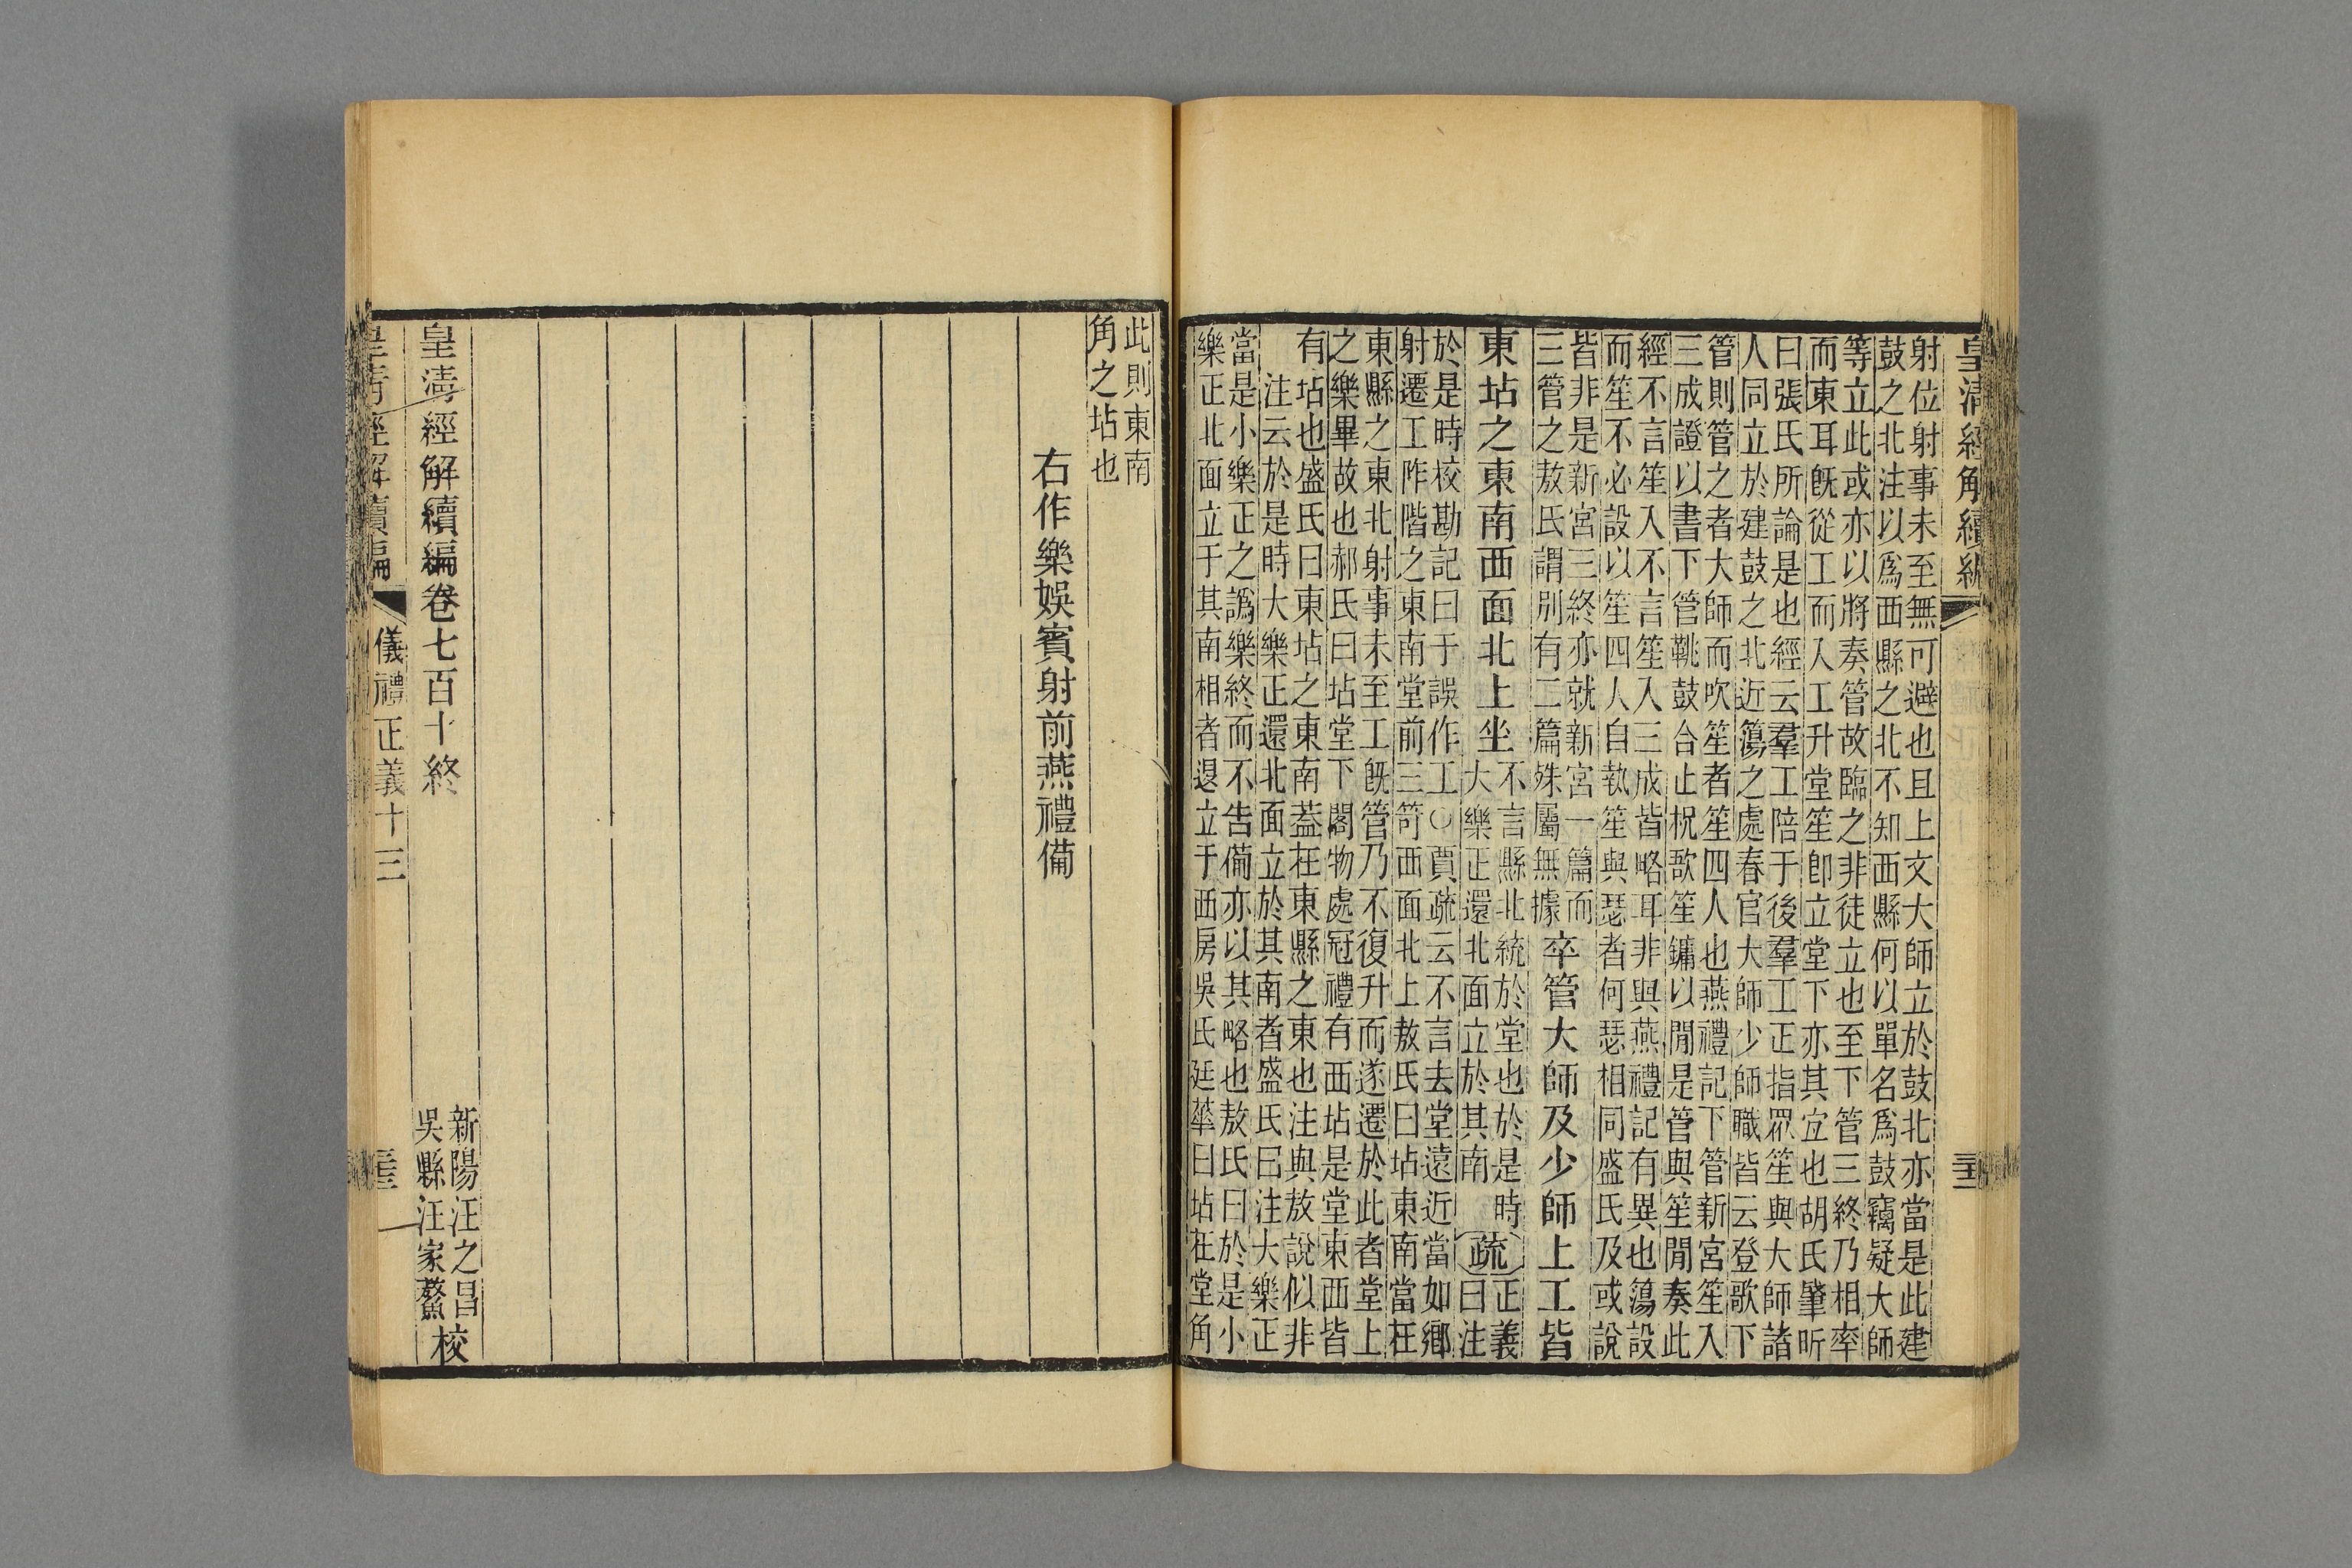 皇清經解續編
射位射事未至無可避也且上文大師立於鼓北亦當是此建
鼓之北注以爲西縣之北不知西縣何以單名爲鼓竊疑大師
等立此或亦以將奏管故臨之非徒立也至下管三終乃相率
而東耳旣從工而入工升堂笙卽立堂下亦其宜也胡氏肇昕
曰張氏所論是也經云羣工陪于後羣工正指眾笙與大師諸
人同立於建鼓之北近簜之處春官大師少師職皆云登歌下
管則管之者大師而吹笙者笙四人也燕禮記下管新宮笙入
三成證以書下管鼗鼓合止柷歌笙鏞以閒是管與笙閒奏此
經不言笙入不言笙入三成皆略耳非與燕禮記有異也簜設
而笙不必設以笙四人自執笙與瑟者何瑟相同盛氏及或說
皆非是新宮三終亦就新宮一篇而
三管之敖氏謂別有二篇殊屬無據
卒管大師及少師上工皆
東坫之東南西面北上坐
不言縣北統於堂也於是時
大樂正還北面立於其南
疏
正義
曰注
於是時校勘記曰于誤作工○賈疏云不言去堂遠近當如鄉
射遷工阼階之東南堂前三笴西面北上敖氏曰坫東南當在
東縣之東北射事未至工旣管乃不復升而遂遷於此者堂上
之樂畢故也郝氏曰坫堂下閣物處冠禮有西坫是堂東西皆
有坫也盛氏曰東坫之東南蓋在東縣之東也注與敖說似非
注云於是時大樂正還北面立於其南者盛氏曰注大樂正
當是小樂正之譌樂終而不告備亦以其略也敖氏曰於是小
樂正北面立于其南相者退立于西房吳氏廷華曰坫在堂角
此則東南
角之坫也
右作樂娛賓射前燕禮備
皇清經解續編卷七百十終
新陽汪之昌
吳縣汪家鰲
校
皇清經解續編
儀禮正義十三